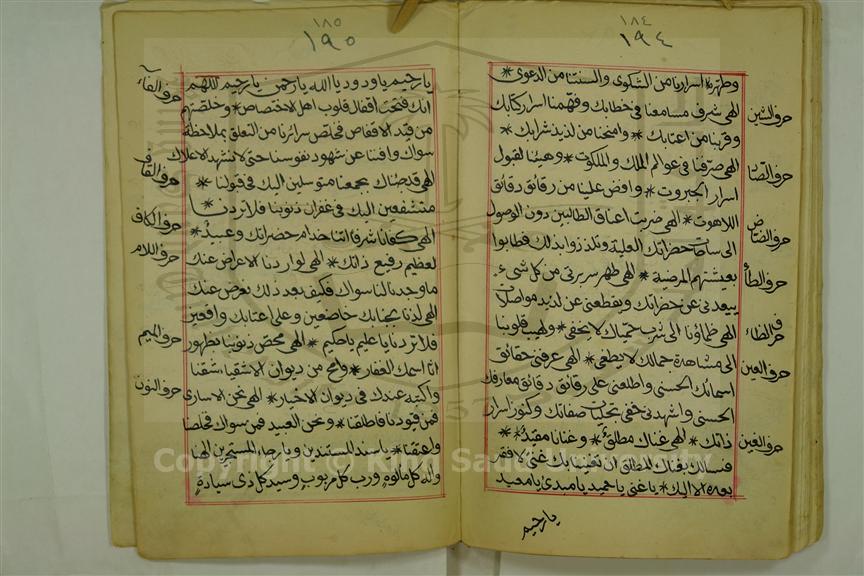 ١٨٤
١٩٤
وطهرة اسرارنا من الشكوى والسنتنا من الدعوى *
الهى شرف مسامعنا فى خطابك وفهمنا اسرار كتابك
حرف الشين
وقربنا من اعتابك * وامنحنا من لذيذ شرابك *
الهى صرفنا فى عوالم الملك والملكوت * وهيئنا لقبول
حرف الصاد
اسرار الجبروت * وافض علينا من رقائق دقائق
اللاهوت * الهى ضربت اعناق الطالبين دون الوصول
حرف الضاد
الى ساحات حضراتك العلية وتلذذوا بذلك فطابوا
بعيشتهم المرضية * الهى طهر سريرتى من كل شىء
حرف الطاء
يبعدنى عن حضراتك ويقطعنى عن لذيذ مواصلاتك
الهى ظماؤنا الى شرب حمياك لا يخفى * ولهيب قلوبنا
حرف الظاء
الى مشاهدة جمالك لا يطفى * الهى عرفنى حقائق
حرف العين
اسمائك الحسنى واطلعنى على رقائق دقائق معارفك
الحسنى واشهدنى خفى تجليات صفاتك وكنوز اسرار
ذاتك * الهى غناك مطلق * وغنانا مقيد * *
حرف الغين
فنسالك بغناك المطلق ان تغنينا بك غنى لا فقر
بعده الا اليك * يا غنى يا حميد يا مبدى يا معيد
يا رحيم
١٨٥
١٩٥
يا رحيم يا ودود يا الله يا رحمن يا رحيم اللهم
حرف الفاء
انك فتحت اقفال قلوب اهل الاختصاص * وخلصتهم
من قيد الاقفاص فخلص سرائرنا من التعلق بملاحظة
سواك وافننا عن شهود نفوسنا حتى لا نشهد الا علاك
حرف القاف
الهى قد جئناك بجمعنا متوسلين اليك فى قولنا *
متشفعين اليك فى غفران ذنوبنا فلا تردنا *
حرف الكاف
الهى كفانا شرفا اننا خدام حضراتك وعبيد *
لعظيم رفيع ذاتك * الهى لو اردنا الاعراض عنك
حرف اللام
ما وجدنا لنا سواك فكيف بعد ذلك نعرض عنك
الهى لذنا بجنابك خاضعين وعلى اعتابك واقعين
فلا تردنا يا عليم يا حكيم * الهى محص ذنوبنا بظهور
حرف الميم
اثار اسمك الغفار * وامح من ديوان الاشقياء شقينا
واكتبه عندك فى ديوان الاخيار * الهى نحن الاسارى
حرف النون
فمن قيودنا فاطلقنا * ونحن العبيد فمن سواك فخلصنا
واعتقنا * يا سند المستندين ويا رجاء المستجيرين الهنا
واله كل مألوه ورب كل مربوب وسيد كل ذى سيادة
Copyright © King Saud University
1957